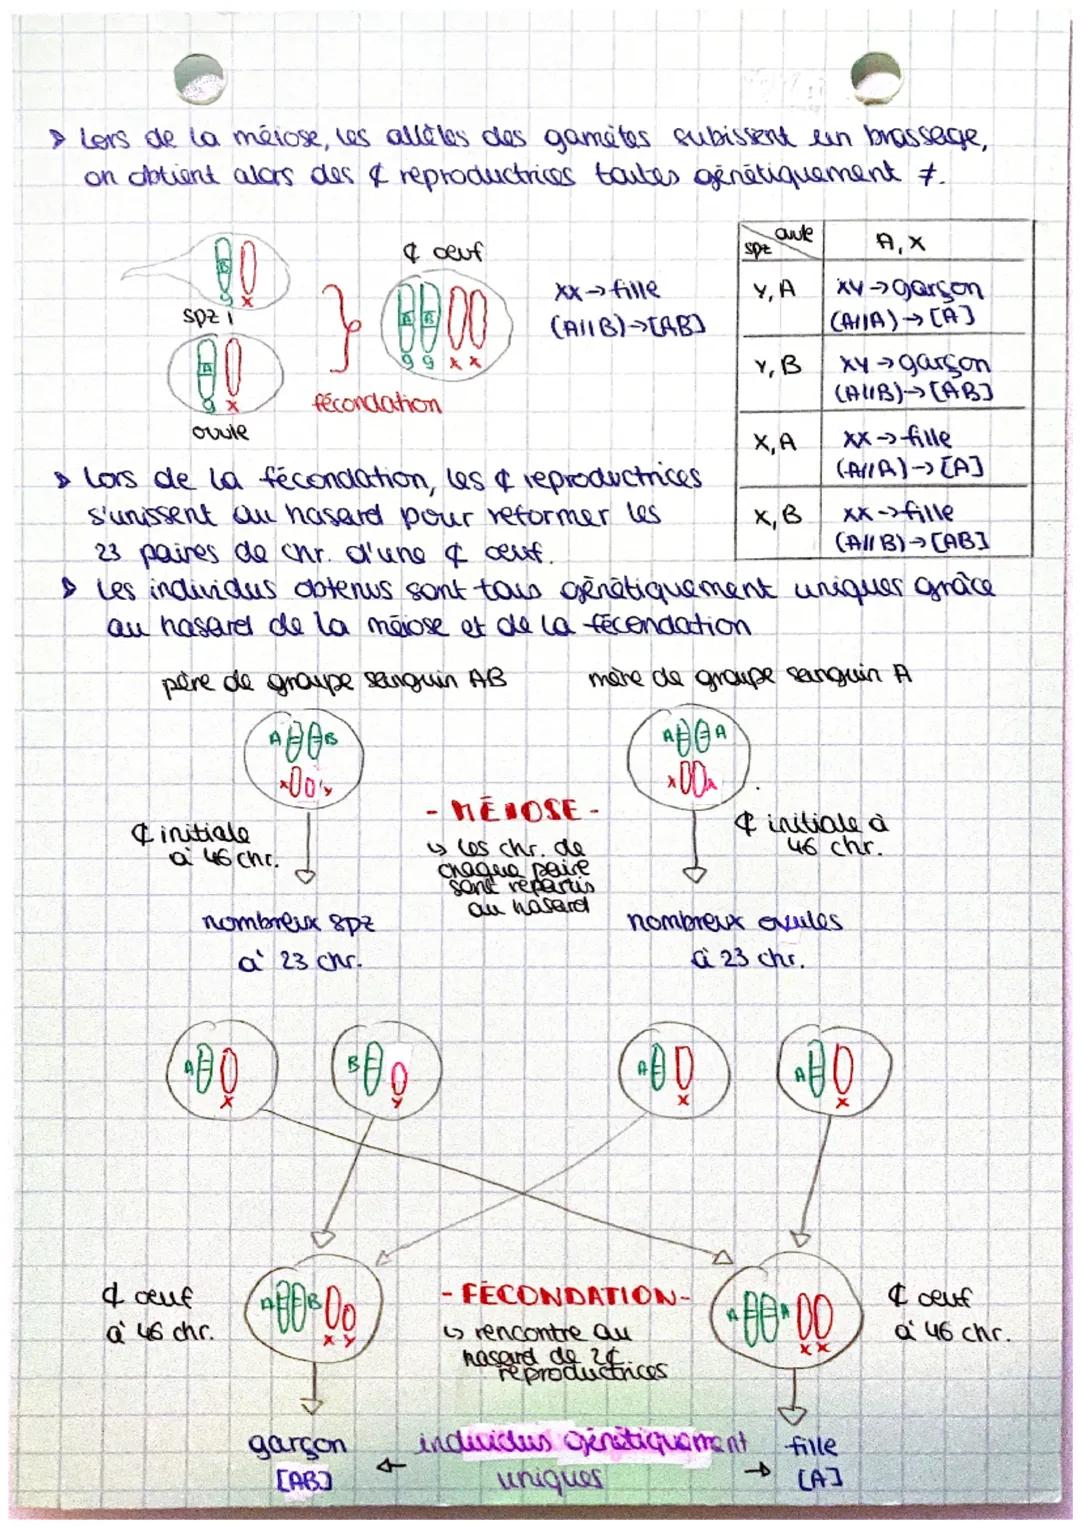 > Lors de la méiose, les allèles des gamètes subissent un brassage,
on obtient alors des ¢ reproductrices toutes génétiquement ≠.
B
9 x
spz 1
A
9 x
ovule
fécondation
¢ oeuf
A B
9 9 x x
XX → fille
(A//B)→[AB]
spz ovule
A, X
Y, A
XY → garçon
(A//A) → [A]
Y, B
XY → garçon
(A//B)→[AB]
X, A
XX → fille
(A//A) → [A]
X, B
XX → fille
(A//B) → [AB]
> Lors de la fécondation, les ¢ reproductrices
s'unissent au hasard pour reformer les
23 paires de chr. d'une ¢ oeuf.
> Les individus obtenus sont tous génétiquement uniques grâce
au hasard de la méiose et de la fécondation
père de groupe sanguin AB
mère de groupe sanguin A
A B
x y
A A
x x
¢ initiale
à 46 chr.
- MÉIOSE -
↳ les chr. de
chaque paire
sont répartis
au hasard
¢ initiale à
46 chr.
nombreux spz
à 23 chr.
nombreux ovules
à 23 chr.
A
x
B
y
A
x
A
x
¢ oeuf
à 46 chr.
A B
x y
- FÉCONDATION -
↳ rencontre au
hasard de 2¢
reproductrices
A A
x x
¢ oeuf
à 46 chr.
garçon
[AB]
← individus génétiquement
uniques →
fille
[A]